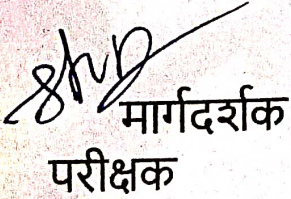 मार्गदर्शक
परीक्षक